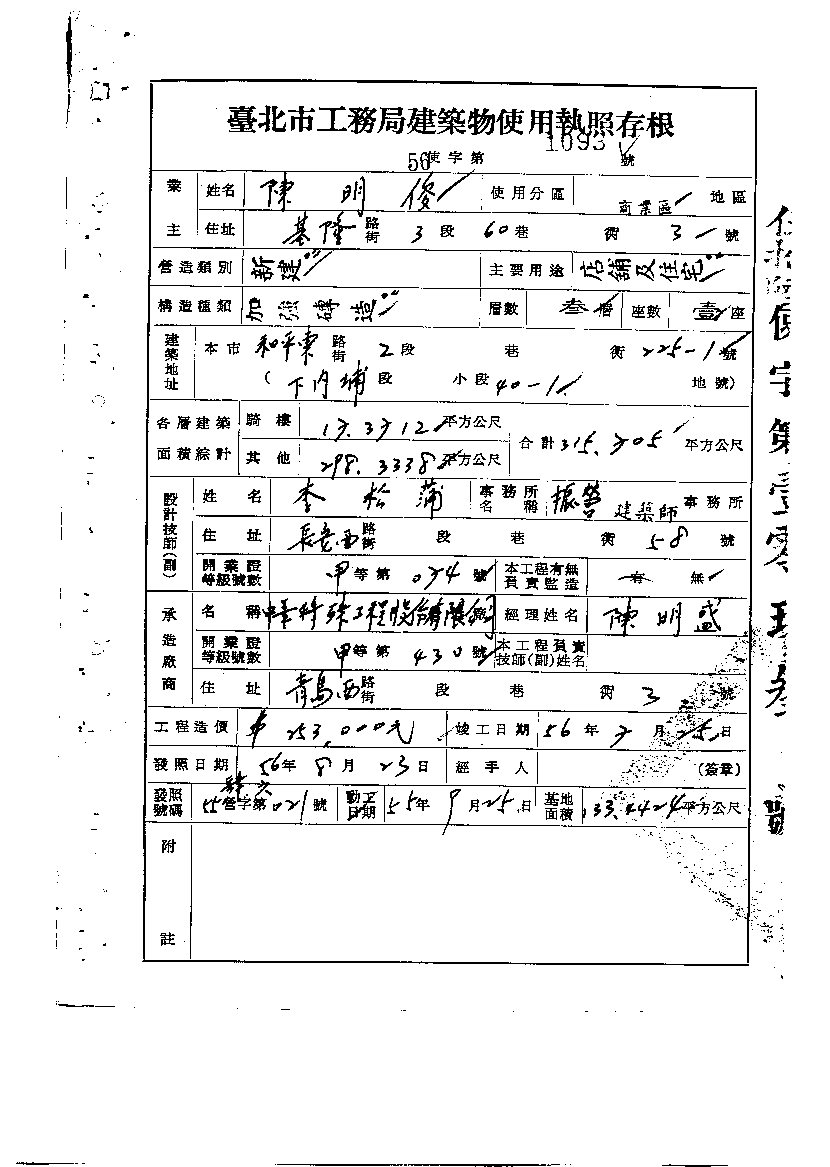 臺北市工務局建築物使用執照存根
56使字第 1093 號
業主 姓名 陳明俊 使用分區 商業區 地區
住址 基隆路街 3段 60巷 衖 3 號
營造類別 新建 主要用途 店舖及住宅
構造種類 加強磚造 層數 叁層 座數 壹座
建築地址 本市 和平東路街 2段 巷 衖 225-1號
(下內埔段 小段 40-1 地號)
各層建築面積綜計 騎樓 平方公尺 合計 平方公尺
其他 298.3338 平方公尺
設計技師(副) 姓名 李松蒲 事務所名稱 振營建築師事務所
住址 長安西路街 段 巷 衖 58 號
開業證等級號數 甲等第 號 本工程有無負責監造 有 無
承造廠商 名稱 經理姓名 陳明盛
開業證等級號數 甲等第 430號 本工程負責技師(副)姓名
住址 青島西路街 段 巷 衖 3 號
工程造價 253,000元 竣工日期 56年7月25日
發照日期 56年8月23日 經手人 (簽章)
發照號碼 55營字第 021號 動工日期 55年9月25日 基地面積 133.4424平方公尺
附註
使字第壹零玖叁